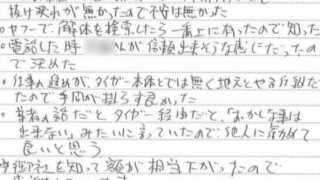 抜け決めが無かったので不安は無かった
○ヤフーで、解体を検索したら一番上に有ったので知った
○電話した時 さんが信頼出来そうな感じだったの
で決めた
○仕事の進めが、タイガー本体とでは無く地元とやる仕組
たので手間が 良かった
○業者の話だと、タイガー経由だと、「おかしな事は
出来ない」みたいに言っていたので、他人に勧めて
良いと思う
御社を知って額が相当下がったので